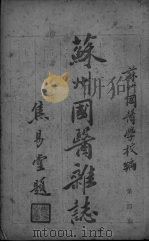 蘇州國醫學校編
蘇州國醫雜誌
第四期
焦易堂題